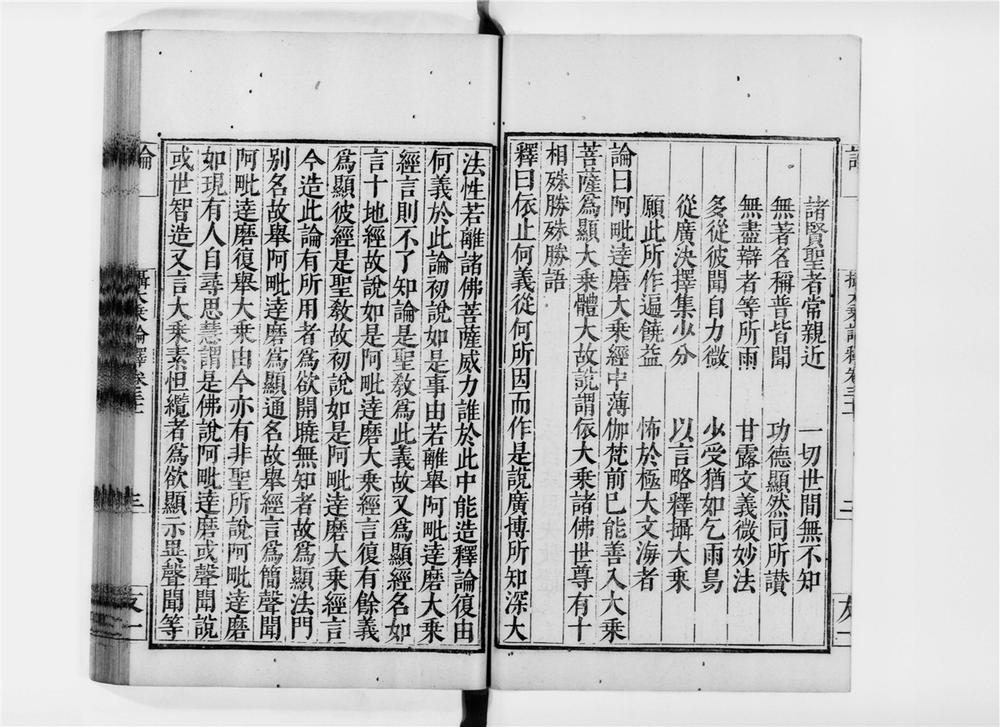 諸賢聖者常親近　一切世間無不知
無著名稱普皆聞　功德顯然同所讚
無盡辯者等所雨　甘露文義微妙法
多從彼聞自力微　少受猶如乞雨鳥
從廣決擇集少分　以言略釋攝大乘
願此所作遍饒益　怖於極大文海者
論曰阿毗達磨大乘經中薄伽梵前已能善入大乘
菩薩爲顯大乘體大故說謂依大乘諸佛世尊有十
相殊勝殊勝語
釋曰依止何義從何所因而作是說廣博所知深大
法性若離諸佛菩薩威力誰於此中能造釋論復由
何義於此論初說如是事由若離舉阿毗達磨大乘
經言則不了知論是聖教爲此義故又爲顯經名如
言十地經故說如是阿毗達磨大乘經言復有餘義
爲顯彼經是聖教故初說如是阿毗達磨大乘經言
今造此論有所用者爲欲開曉無知者故爲顯法門
別名故舉阿毗達磨爲顯通名故舉經言爲簡聲聞
阿毗達磨復舉大乘由今亦有非聖所說阿毗達磨
如現有人自尋思慧謂是佛說阿毗達磨或聲聞說
或世智造又言大乘素怛纜者爲欲顯示異聲聞等
論
攝大乘論釋卷三十
三
友一